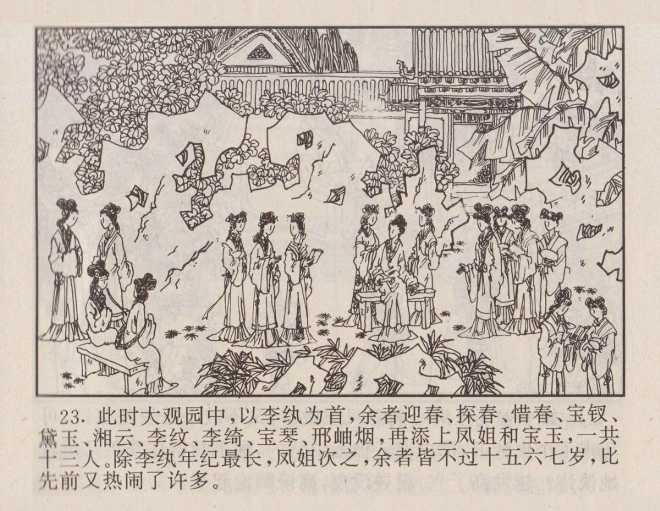 23. 此时大观园中，以李纨为首，余者迎春、探春、惜春、宝钗、
黛玉、湘云、李纹、李绮、宝琴、邢岫烟，再添上凤姐和宝玉，一共
十三人。除李纨年纪最长，凤姐次之，余者皆不过十五六七岁，比
先前又热闹了许多。